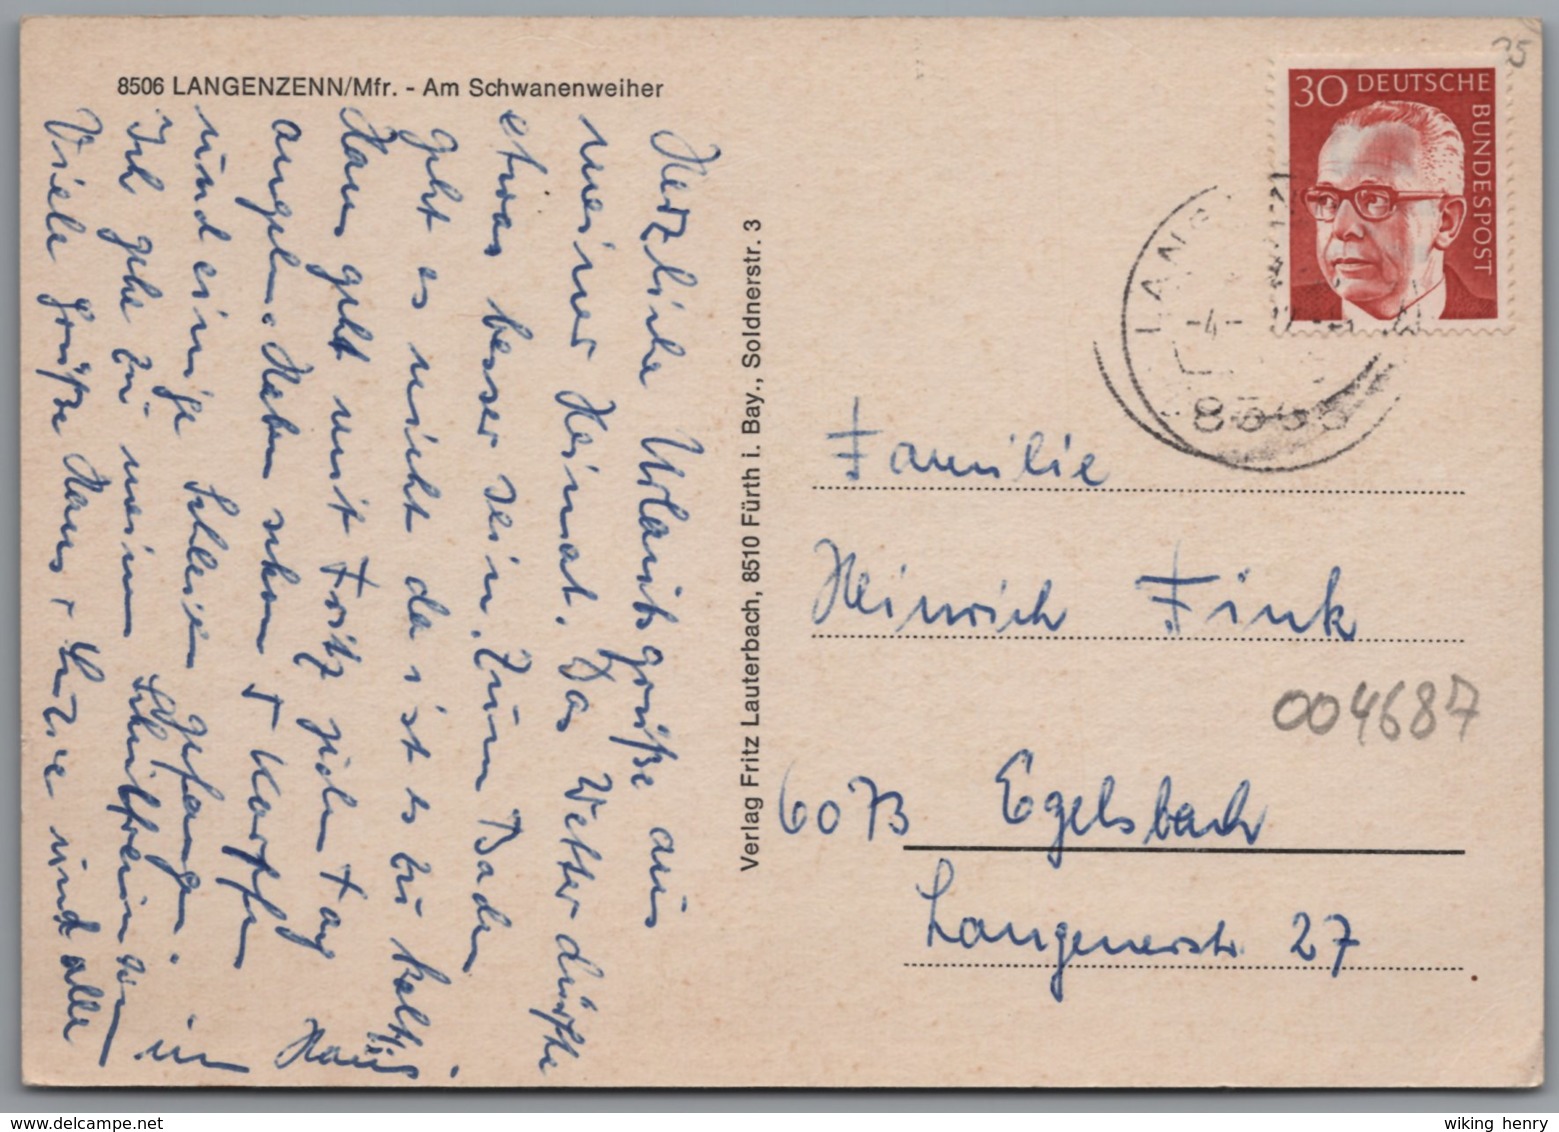 8506 LANGENZENN/Mfr. - Am Schwanenweiher
Herzliche Urlaubsgrüße aus
meiner Heimat. Das Wetter dürfte
etwas besser sein, zum Baden
geht es nicht da ist es zu kalt.
Hans geht mit Fritz jeden Tag
angeln. Haben schon 5 Karpfen
und einige Schleien gefangen.
Ich gehe zu meinen in
Viele Grüße Hans + und alle
Verlag Fritz Lauterbach, 8510 Fürth i. Bay., Soldnerstr. 3
30 DEUTSCHE BUNDESPOST
LANG
-4-
Familie
Heinrich Fink
004687
6073 Egelsbach
Langenerstr. 27
wiking henry